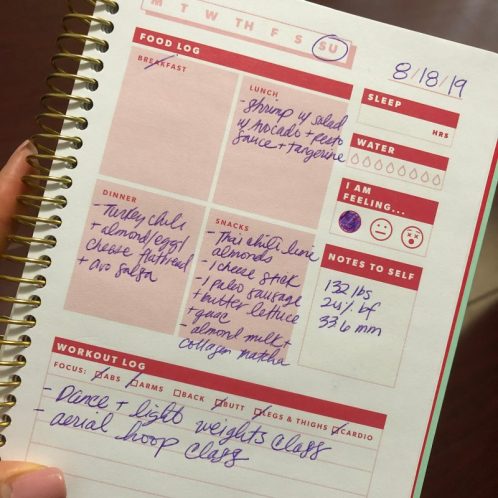 M T W TH F S SU
8/18/19
FOOD LOG
BREAKFAST
LUNCH
- shrimp w/ salad
w/ Avocado + pesto
sauce + tangerine
DINNER
- Turkey chili
+ almond/egg/
cheese flatbread
+ avo salsa
SNACKS
- Thai chili lime
almonds
- 1 cheese stick
- 1 paleo sausage
+ butter lettuce
+ guac
- almond milk +
collagen matcha
SLEEP
HRS
WATER
I AM
FEELING...
NOTES TO SELF
132 lbs
24% bf
33.6 mm
WORKOUT LOG
FOCUS: ABS ARMS BACK BUTT LEGS & THIGHS CARDIO
- Dance + light weights class
- aerial hoop class